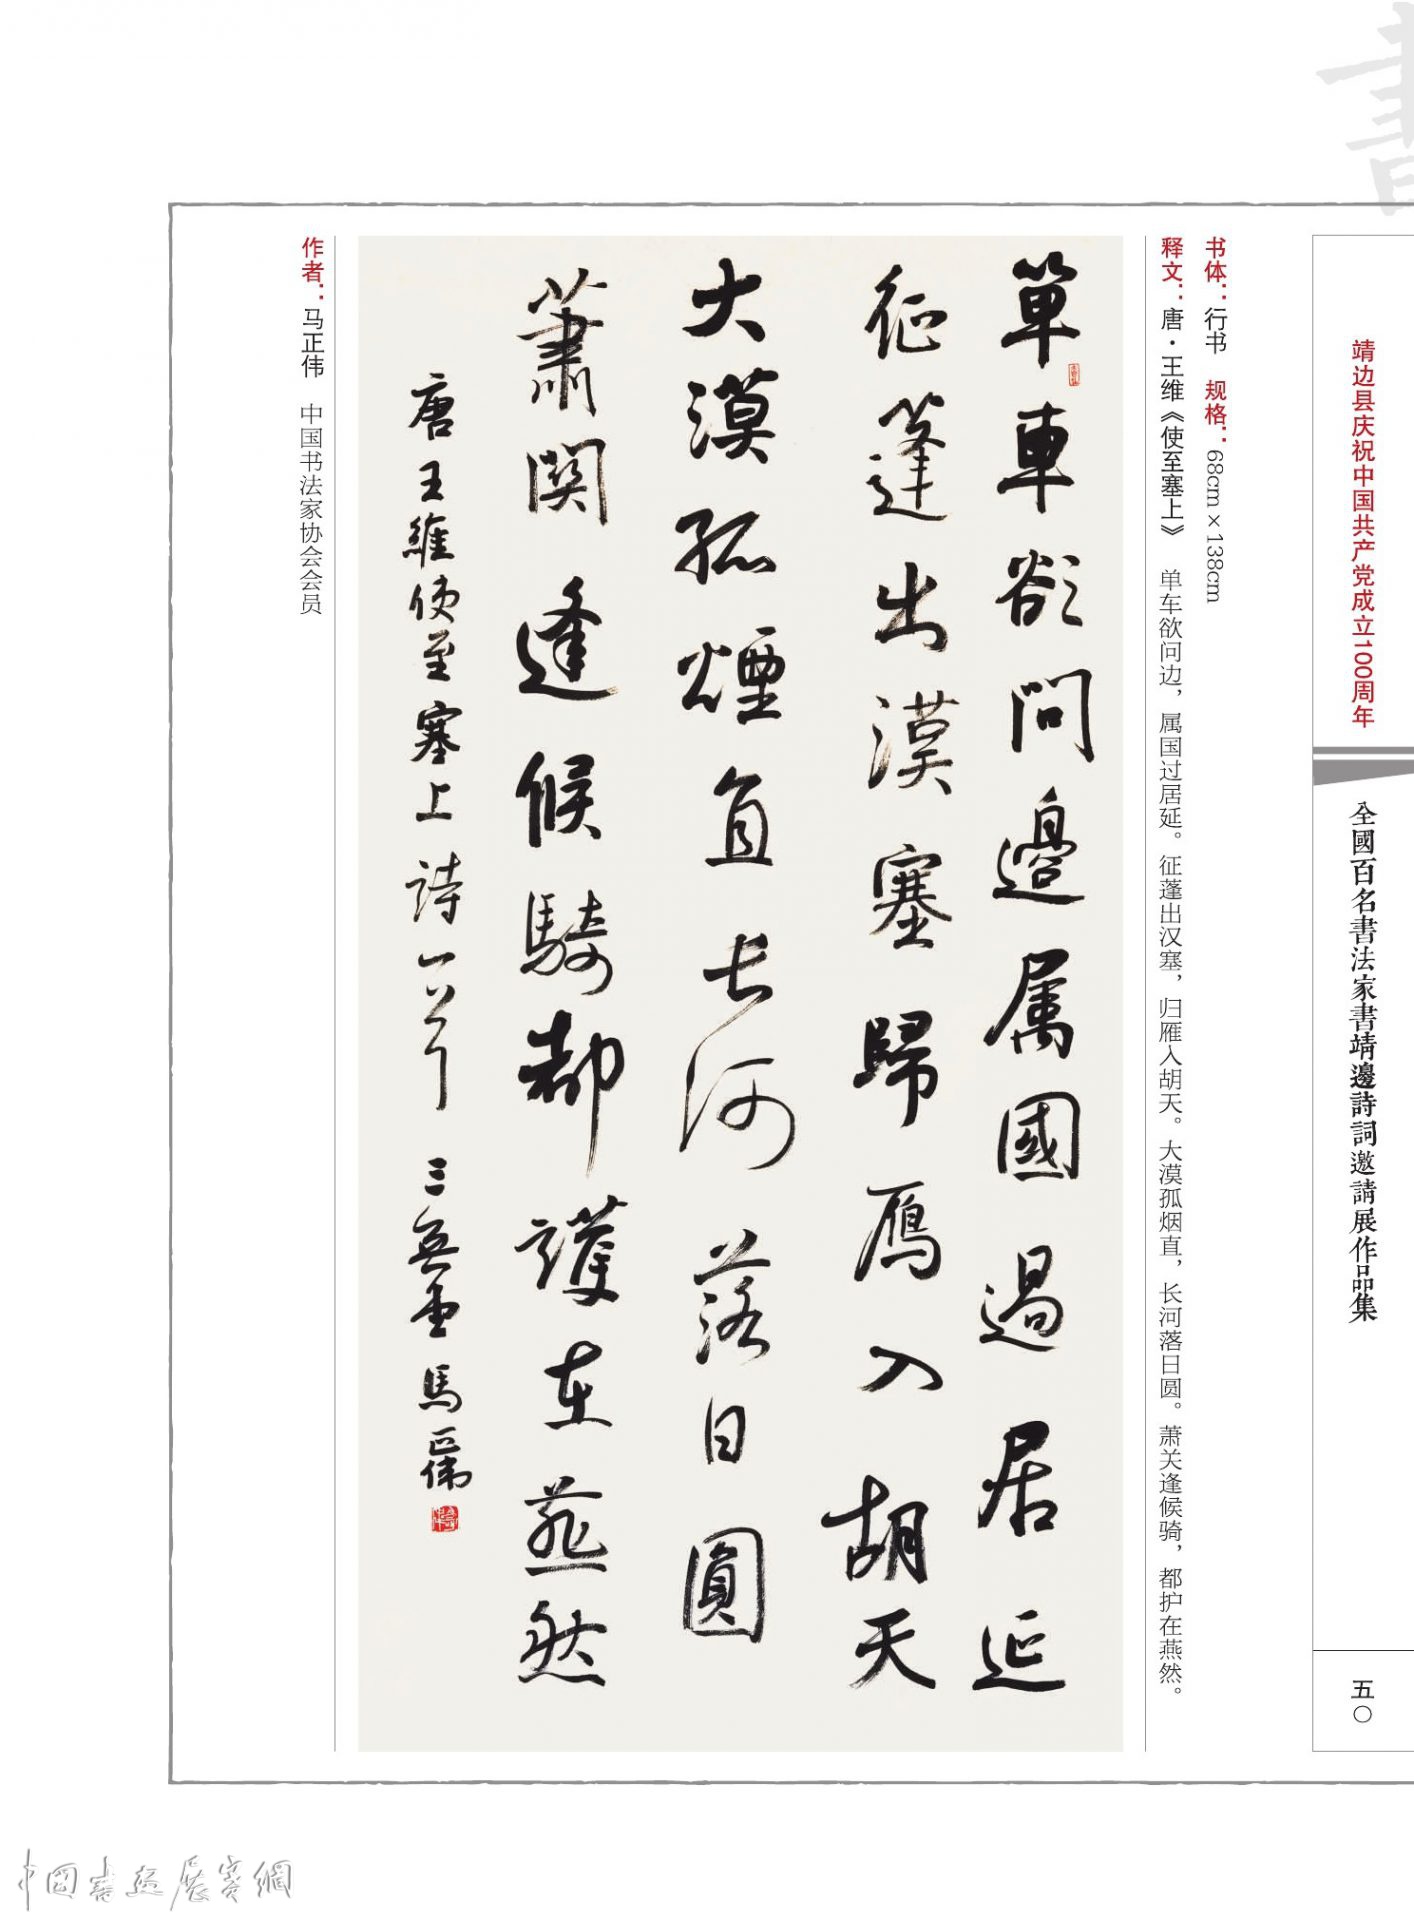 靖边县庆祝中国共产党成立100周年
全國百名書法家書靖邊詩詞邀請展作品集
五〇
书体：行书 规格：68cm×138cm
释文：唐·王维《使至塞上》 单车欲问边，属国过居延。征蓬出汉塞，归雁入胡天。大漠孤烟直，长河落日圆。萧关逢候骑，都护在燕然。
單車欲問邊属國過居延
征篷出漠塞歸鴈入胡天
大漠孤煙直長河落日圓
蕭関逢候騎都護在燕然
唐王維使至塞上詩一首 三無堂馬正偉
作者：马正伟 中国书法家协会会员
書
中國書畫展賽網